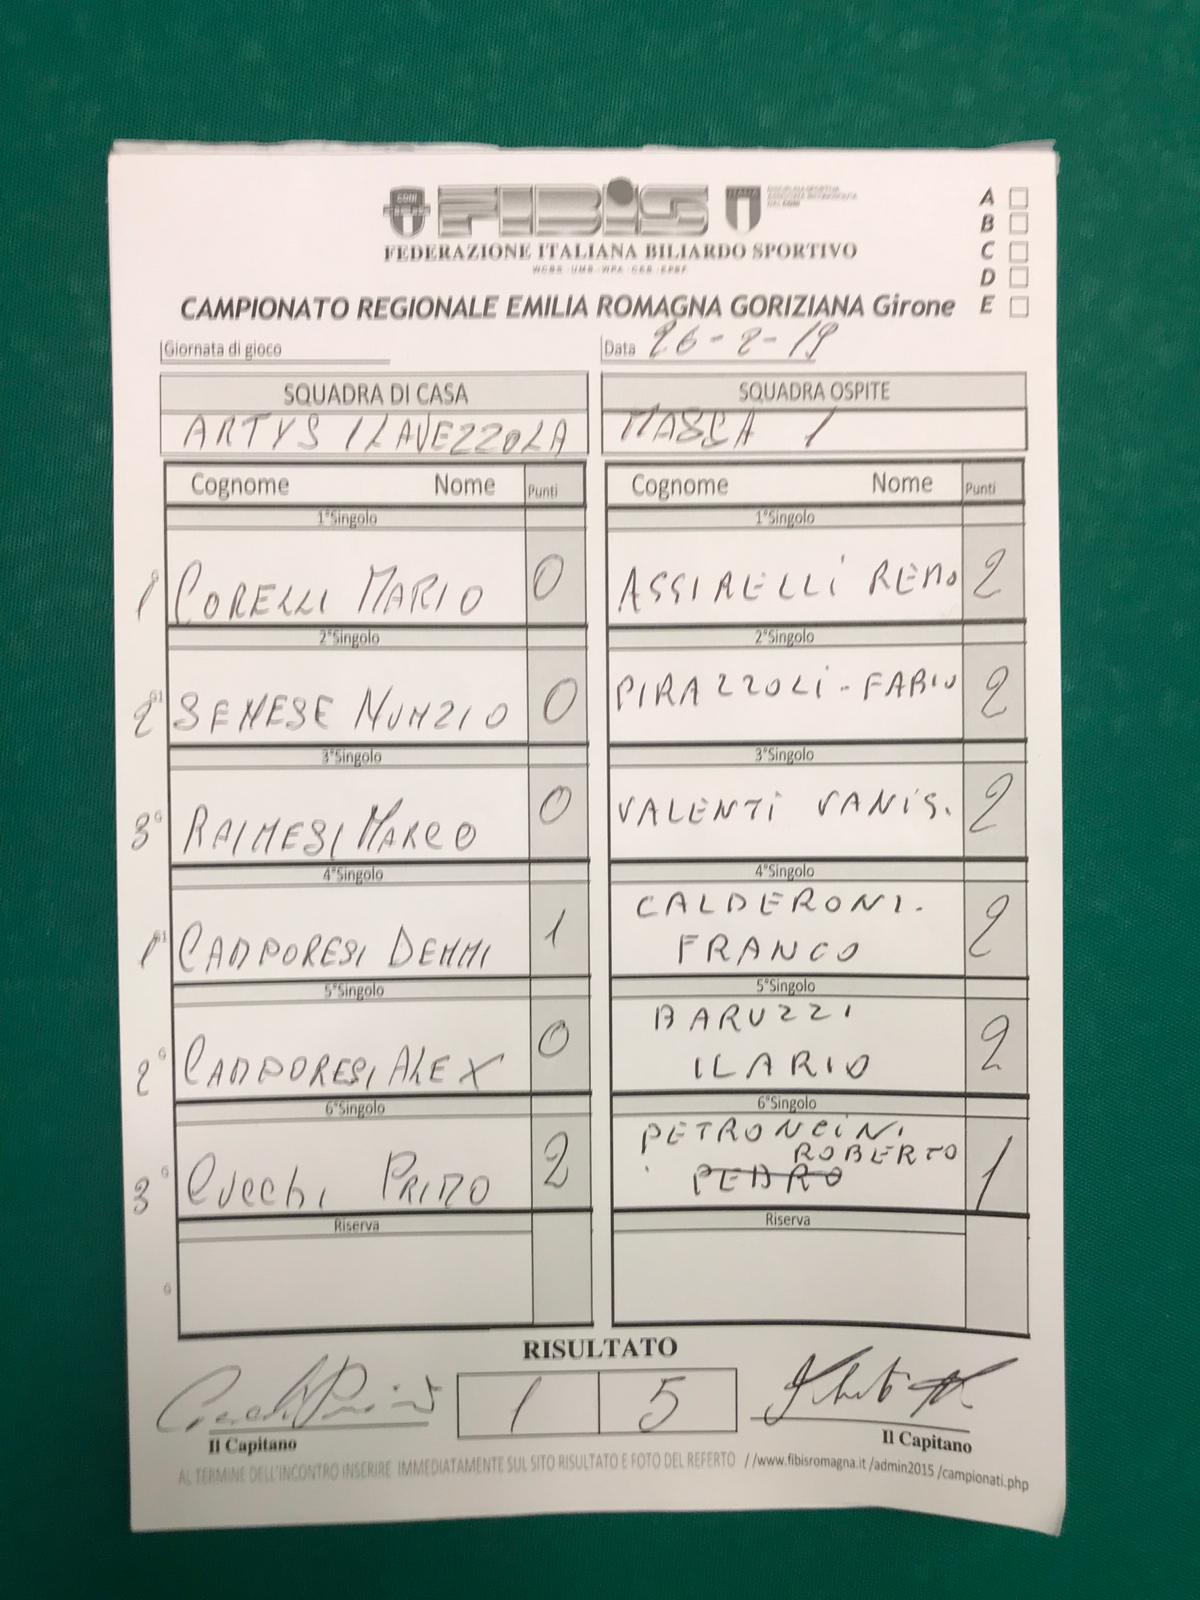 FIBIS
FEDERAZIONE ITALIANA BILIARDO SPORTIVO
WCBS - UMB - WPA - CEB - EPBF
A
B
C
D
E
CAMPIONATO REGIONALE EMILIA ROMAGNA GORIZIANA Girone
Giornata di gioco
Data 26-2-19
SQUADRA DI CASA
ARTYS 1 LAVEZZOLA
SQUADRA OSPITE
MASCA 1
Cognome Nome Punti
Cognome Nome Punti
1°Singolo
1°Singolo
1 CORELLI MARIO 0
ASSIRELLI REMO 2
2°Singolo
2°Singolo
2 SENESE NUNZIO 0
PIRAZZOLI - FABIO 2
3°Singolo
3°Singolo
3 RAINESI MARCO 0
VALENTI VANIS. 2
4°Singolo
4°Singolo
1 CAMPORESI DEMMI 1
CALDERONI.
FRANCO 2
5°Singolo
5°Singolo
2 CAMPORESI ALEX 0
BARUZZI
ILARIO 2
6°Singolo
6°Singolo
3 CUCCHI PRIMO 2
PETRONCINI
ROBERTO
PEDRO 1
Riserva
Riserva
RISULTATO
1 5
Il Capitano
Il Capitano
AL TERMINE DELL'INCONTRO INSERIRE IMMEDIATAMENTE SUL SITO RISULTATO E FOTO DEL REFERTO //www.fibisromagna.it /admin2015 /campionati.php